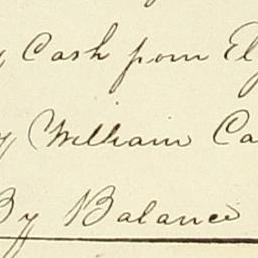 y Cash from El
y William Ca
By Balance